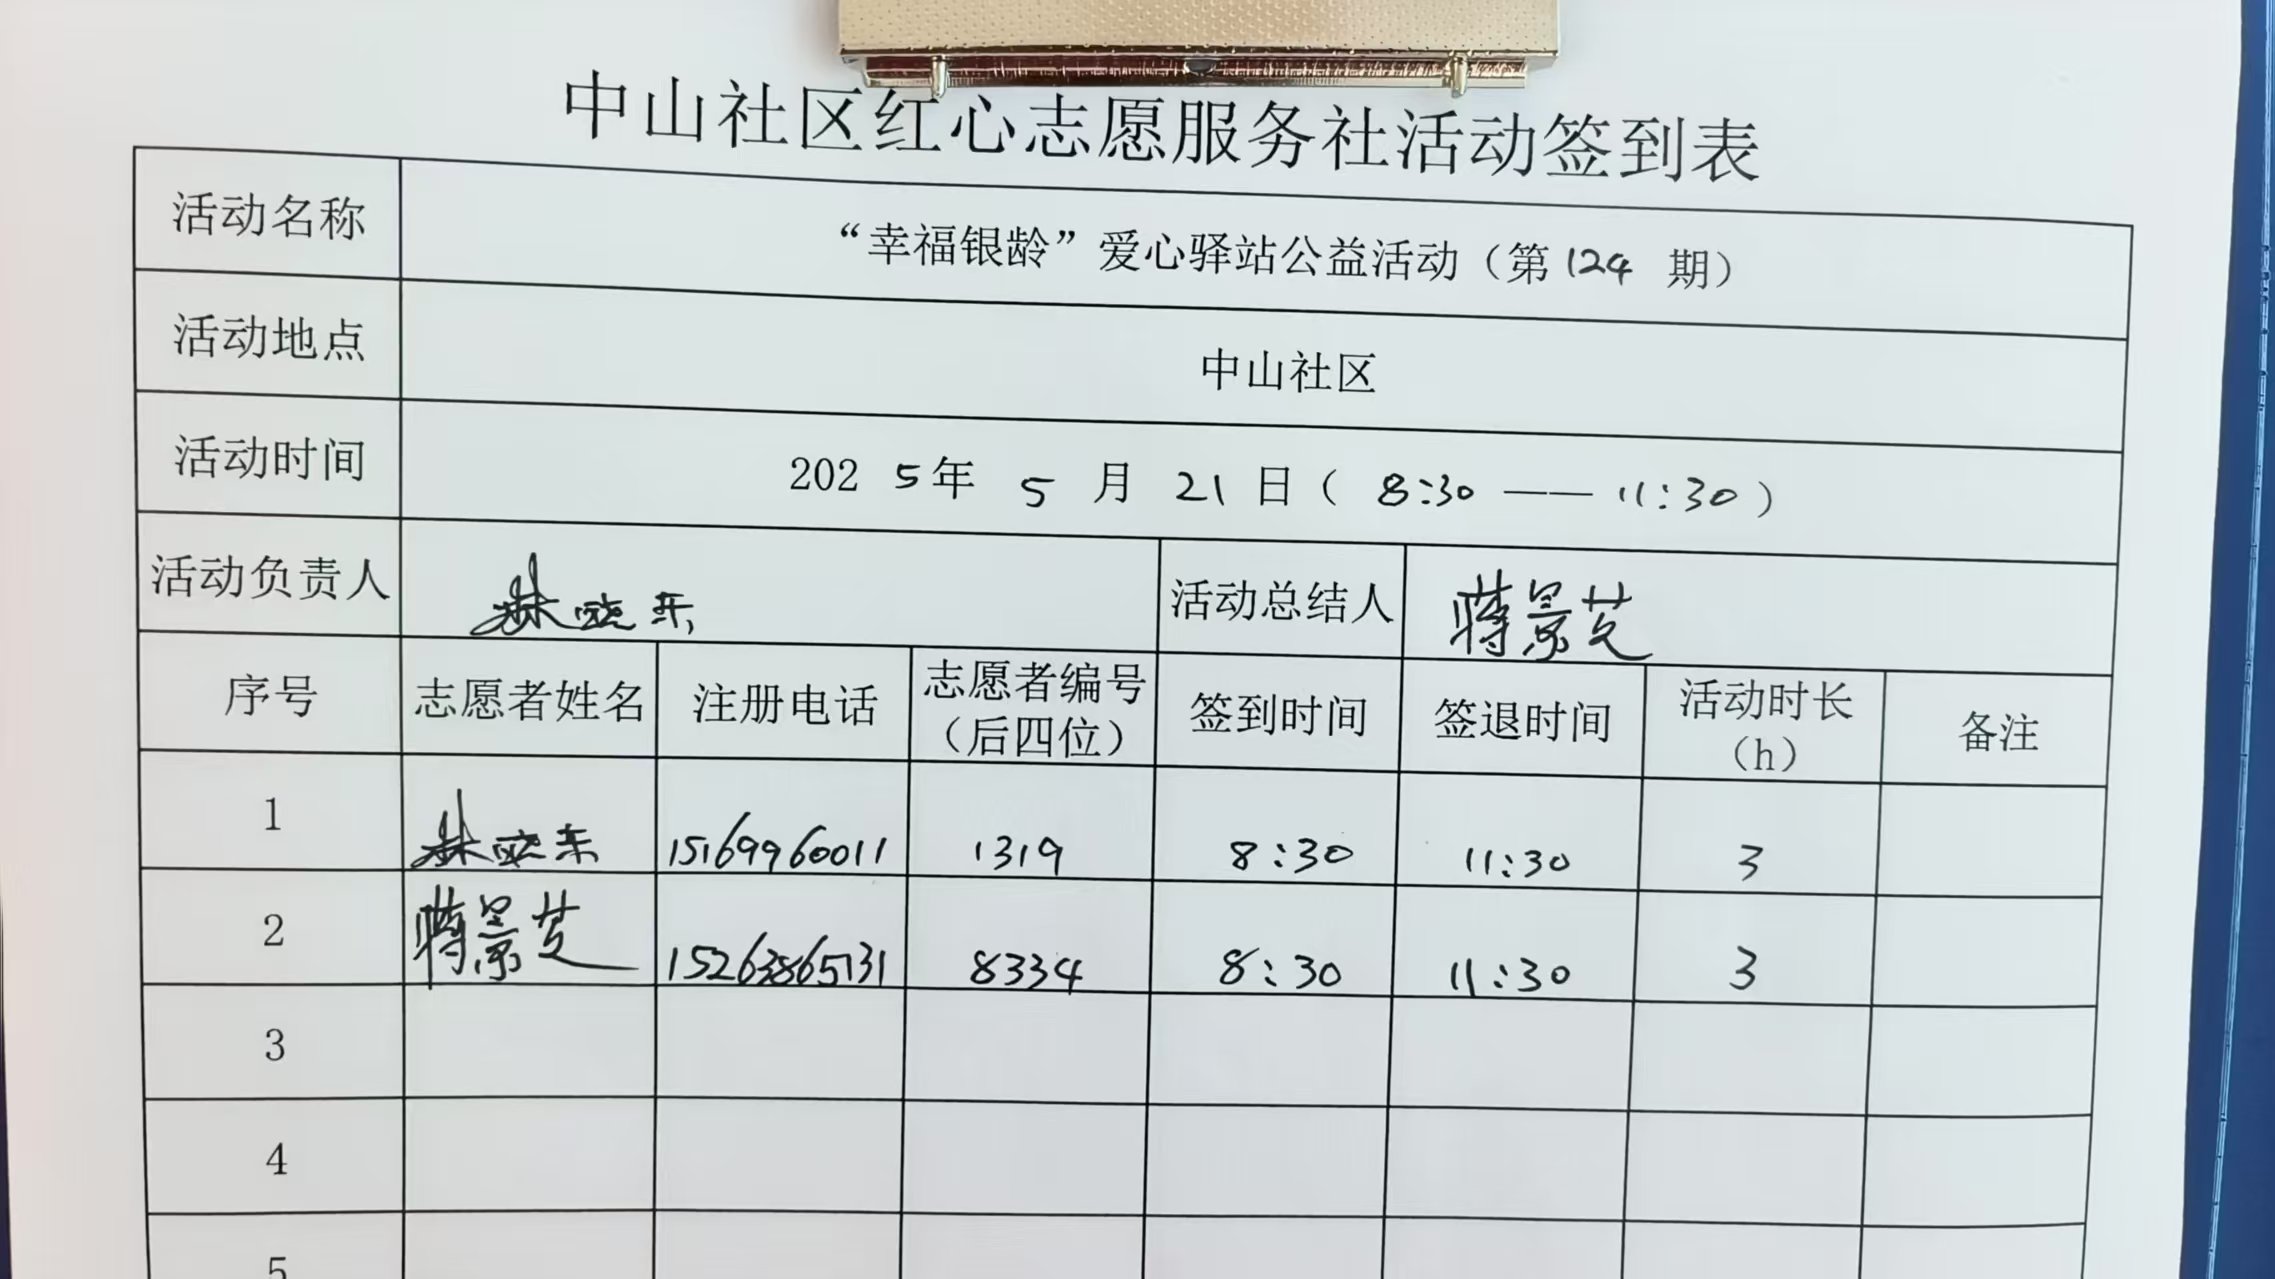 中山社区红心志愿服务社活动签到表
活动名称 “幸福银龄”爱心驿站公益活动（第 124 期）
活动地点 中山社区
活动时间 2025年 5 月 21 日（ 8:30 —— 11:30 ）
活动负责人 林晓东 活动总结人 蒋景芝
序号 志愿者姓名 注册电话 志愿者编号（后四位） 签到时间 签退时间 活动时长（h） 备注
1 林晓东 15169960011 1319 8:30 11:30 3
2 蒋景芝 15263865131 8334 8:30 11:30 3
3
4
5